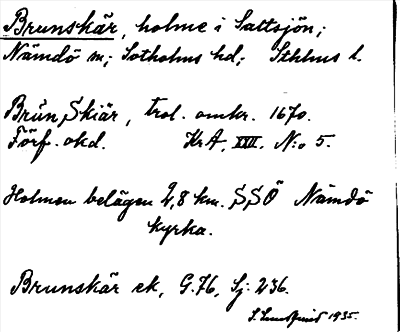 Brunskär, holme i Saltsjön;
Nämdö sn; Sotholms hd; Sthlms l.
Brun Skiär, trol. omkr. 1670.
Förf. okd. KrA, XXII. N:o 5.
Holmen belägen 2,8 km. SSÖ Nämdö
kyrka.
Brunskär ek, G.76, Sj: 236.
S. Lundquist 1935.